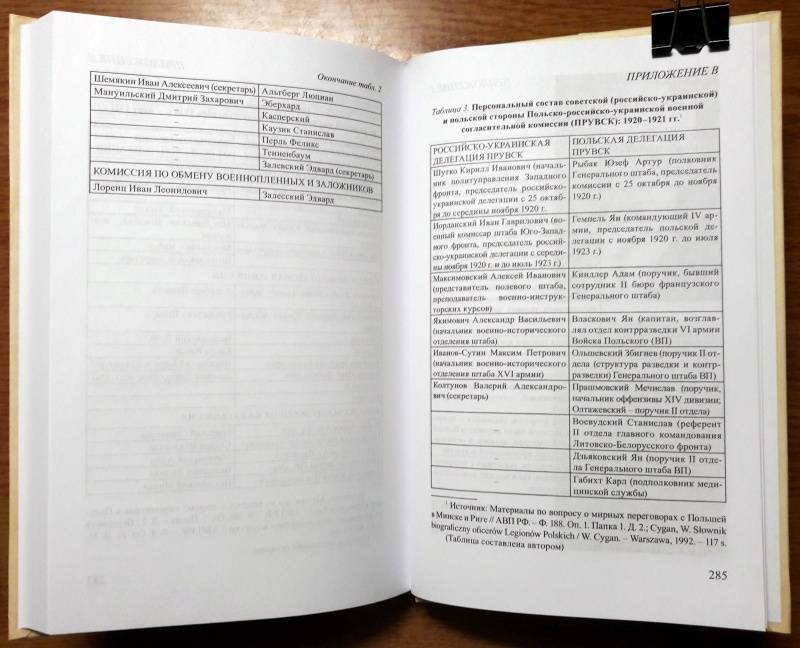 Окончание табл. 2
Шемякин Иван Алексеевич (секретарь) Альтберг Люциан
Мануильский Дмитрий Захарович Эберхард
– Касперский
– Каузик Станислав
– Перль Феликс
– Тенненбаум
– Залевский Эдвард (секретарь)
КОМИССИЯ ПО ОБМЕНУ ВОЕННОПЛЕННЫХ И ЗАЛОЖНИКОВ
Лоренц Иван Леонидович Залесский Эдвард
ПРИЛОЖЕНИЕ В
Таблица 3. Персональный состав советской (российско-украинской)
и польской стороны Польско-российско-украинской военной
согласительной комиссии (ПРУВСК): 1920–1921 гг.¹
РОССИЙСКО-УКРАИНСКАЯ
ДЕЛЕГАЦИЯ ПРУВСК
ПОЛЬСКАЯ ДЕЛЕГАЦИЯ
ПРУВСК
Шутко Кирилл Иванович (началь-
ник политуправления Западного
фронта, председатель российско-
украинской делегации с 25 октяб-
ря до середины ноября 1920 г.
Рыбак Юзеф Артур (полковник
Генерального штаба, председатель
комиссии с 25 октября до ноября
1920 г.)
Иорданский Иван Гаврилович (во-
енный комиссар штаба Юго-Запад-
ного фронта, председатель россий-
ско-украинской делегации с середи-
ны ноября 1920 г. и до июль 1923 г.)
Гемпель Ян (командующий IV ар-
мии, председатель польской де-
легации с ноября 1920 г. до июля
1923 г.)
Максимовский Алексей Иванович
(представитель полевого штаба,
преподаватель военно-инструк-
торских курсов)
Киндлер Адам (поручик, бывший
сотрудник II бюро французского
Генерального штаба)
Якимович Александр Васильевич
(начальник военно-исторического
отделения штаба)
Власкович Ян (капитан, возглав-
лял отдел контрразведки VI армии
Войска Польского (ВП)
Иванов-Сутин Максим Петрович
(начальник военно-исторического
отделения штаба XVI армии)
Ольшевский Збигнев (поручик II от-
дела (структура разведки и контр-
разведки) Генерального штаба ВП)
Колтунов Валерий Александро-
вич (секретарь)
Прашмовский Мечислав (поручик,
начальник оффензивы XIV дивизии;
Олтажевский – поручик II отдела)
– Воевудский Станислав (референт
II отдела главного командования
Литовско-Белорусского фронта)
– Дзьяковский Ян (поручик II отде-
ла Генерального штаба ВП)
– Габихт Карл (подполковник меди-
цинской службы)
¹ Источник: Материалы по вопросу о мирных переговорах с Польшей
в Минске и Риге // АВП РФ. – Ф. 188. Оп. 1. Папка 1. Д. 2.; Cygan, W. Słownik
biograficzny oficerów Legionów Polskich / W. Cygan. – Warszawa, 1992. – 117 s.
(Таблица составлена автором)
285